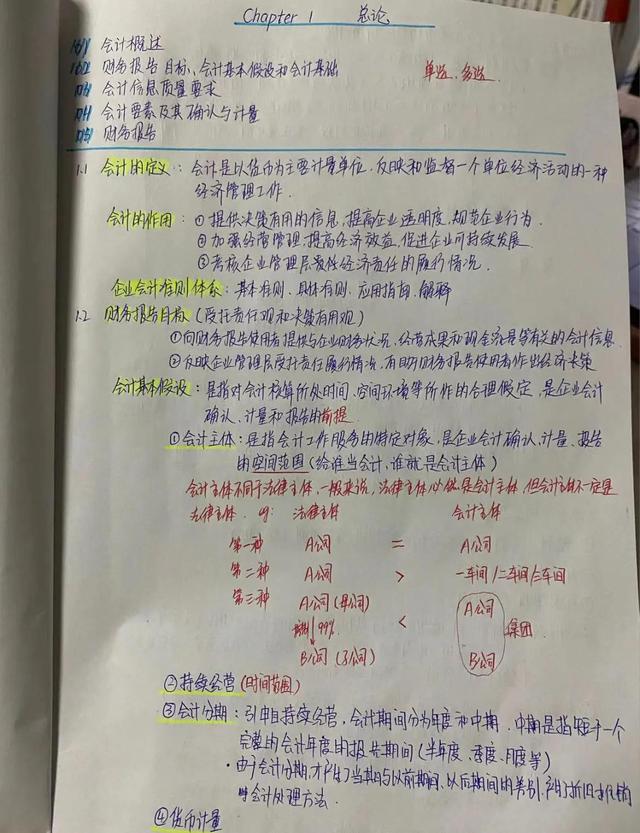 Chapter 1 总论
会计概述
财务报告目标、会计基本假设和会计基础 单选、多选
会计信息质量要求
会计要素及其确认与计量
财务报告
1.1 会计的定义：会计是以货币为主要计量单位，反映和监督一个单位经济活动的一种
经济管理工作．
会计的作用：①提供决策有用的信息，提高企业透明度，规范企业行为．
②加强经营管理，提高经济效益，促进企业可持续发展
③考核企业管理层受托经济责任的履行情况．
企业会计准则体系：基本准则、具体准则、应用指南、解释
1.2 财务报告目标（受托责任观和决策有用观）
①向财务报告使用者提供与企业财务状况、经营成果和现金流量等有关的会计信息
②反映企业管理层受托责任履行情况，有助于财务报告使用者作出经济决策
会计基本假设：是指对会计核算所处时间、空间环境等所作的合理假定，是企业会计
确认、计量和报告的前提
①会计主体：是指会计工作服务的特定对象，是企业会计确认、计量、报告
的空间范围（给谁当会计，谁就是会计主体）
会计主体不同于法律主体，一般来说，法律主体必然是会计主体，但会计主体不一定是
法律主体． eg: 法律主体 会计主体
第一种 A公司 = A公司
第二种 A公司 > 一车间/二车间/三车间
第三种 A公司（母公司） < A公司
99% 集团
B公司（子公司） B公司
②持续经营（时间范围）
③会计分期：引申自持续经营，会计期间分为年度和中期．中期是指短于一个
完整的会计年度的报告期间（半年度、季度、月度等）
·由于会计分期，才产生了当期与以前期间、以后期间的差别，产生了折旧、摊销
会计处理方法．
④货币计量